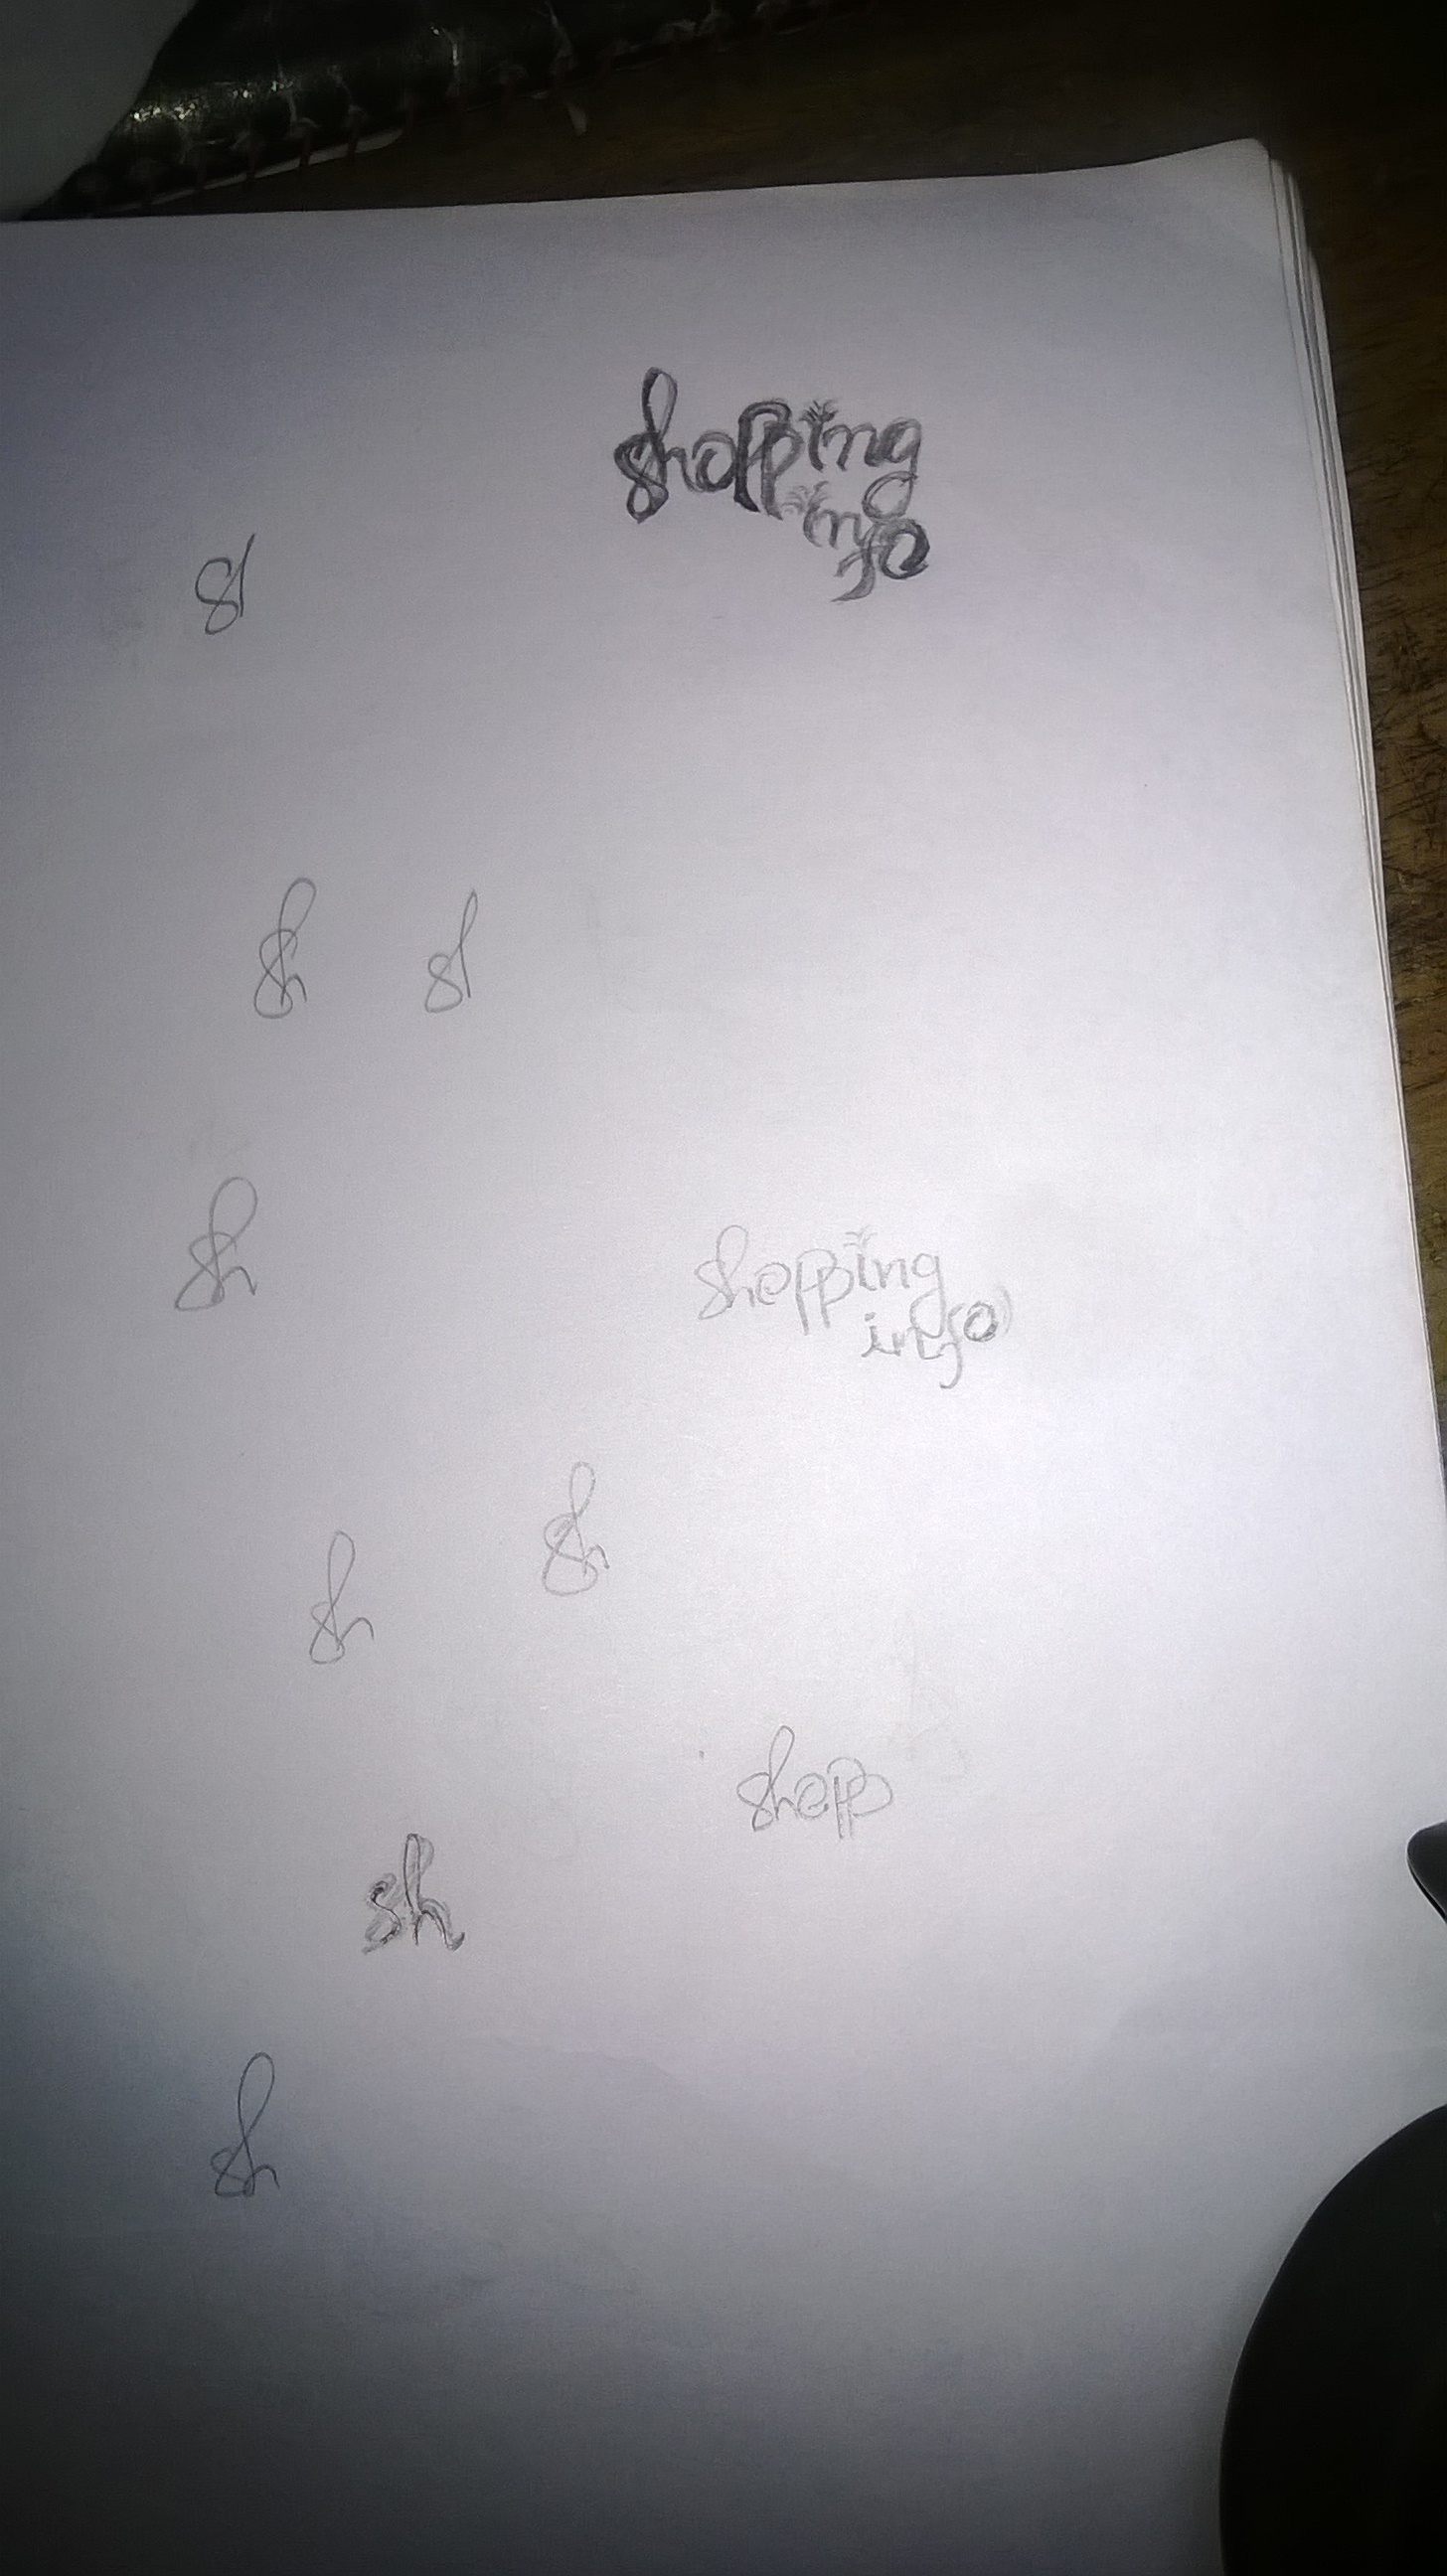 shopping
info
sl
sh sl
sh
shopping
info
sh
sh
shopp
sh
sh